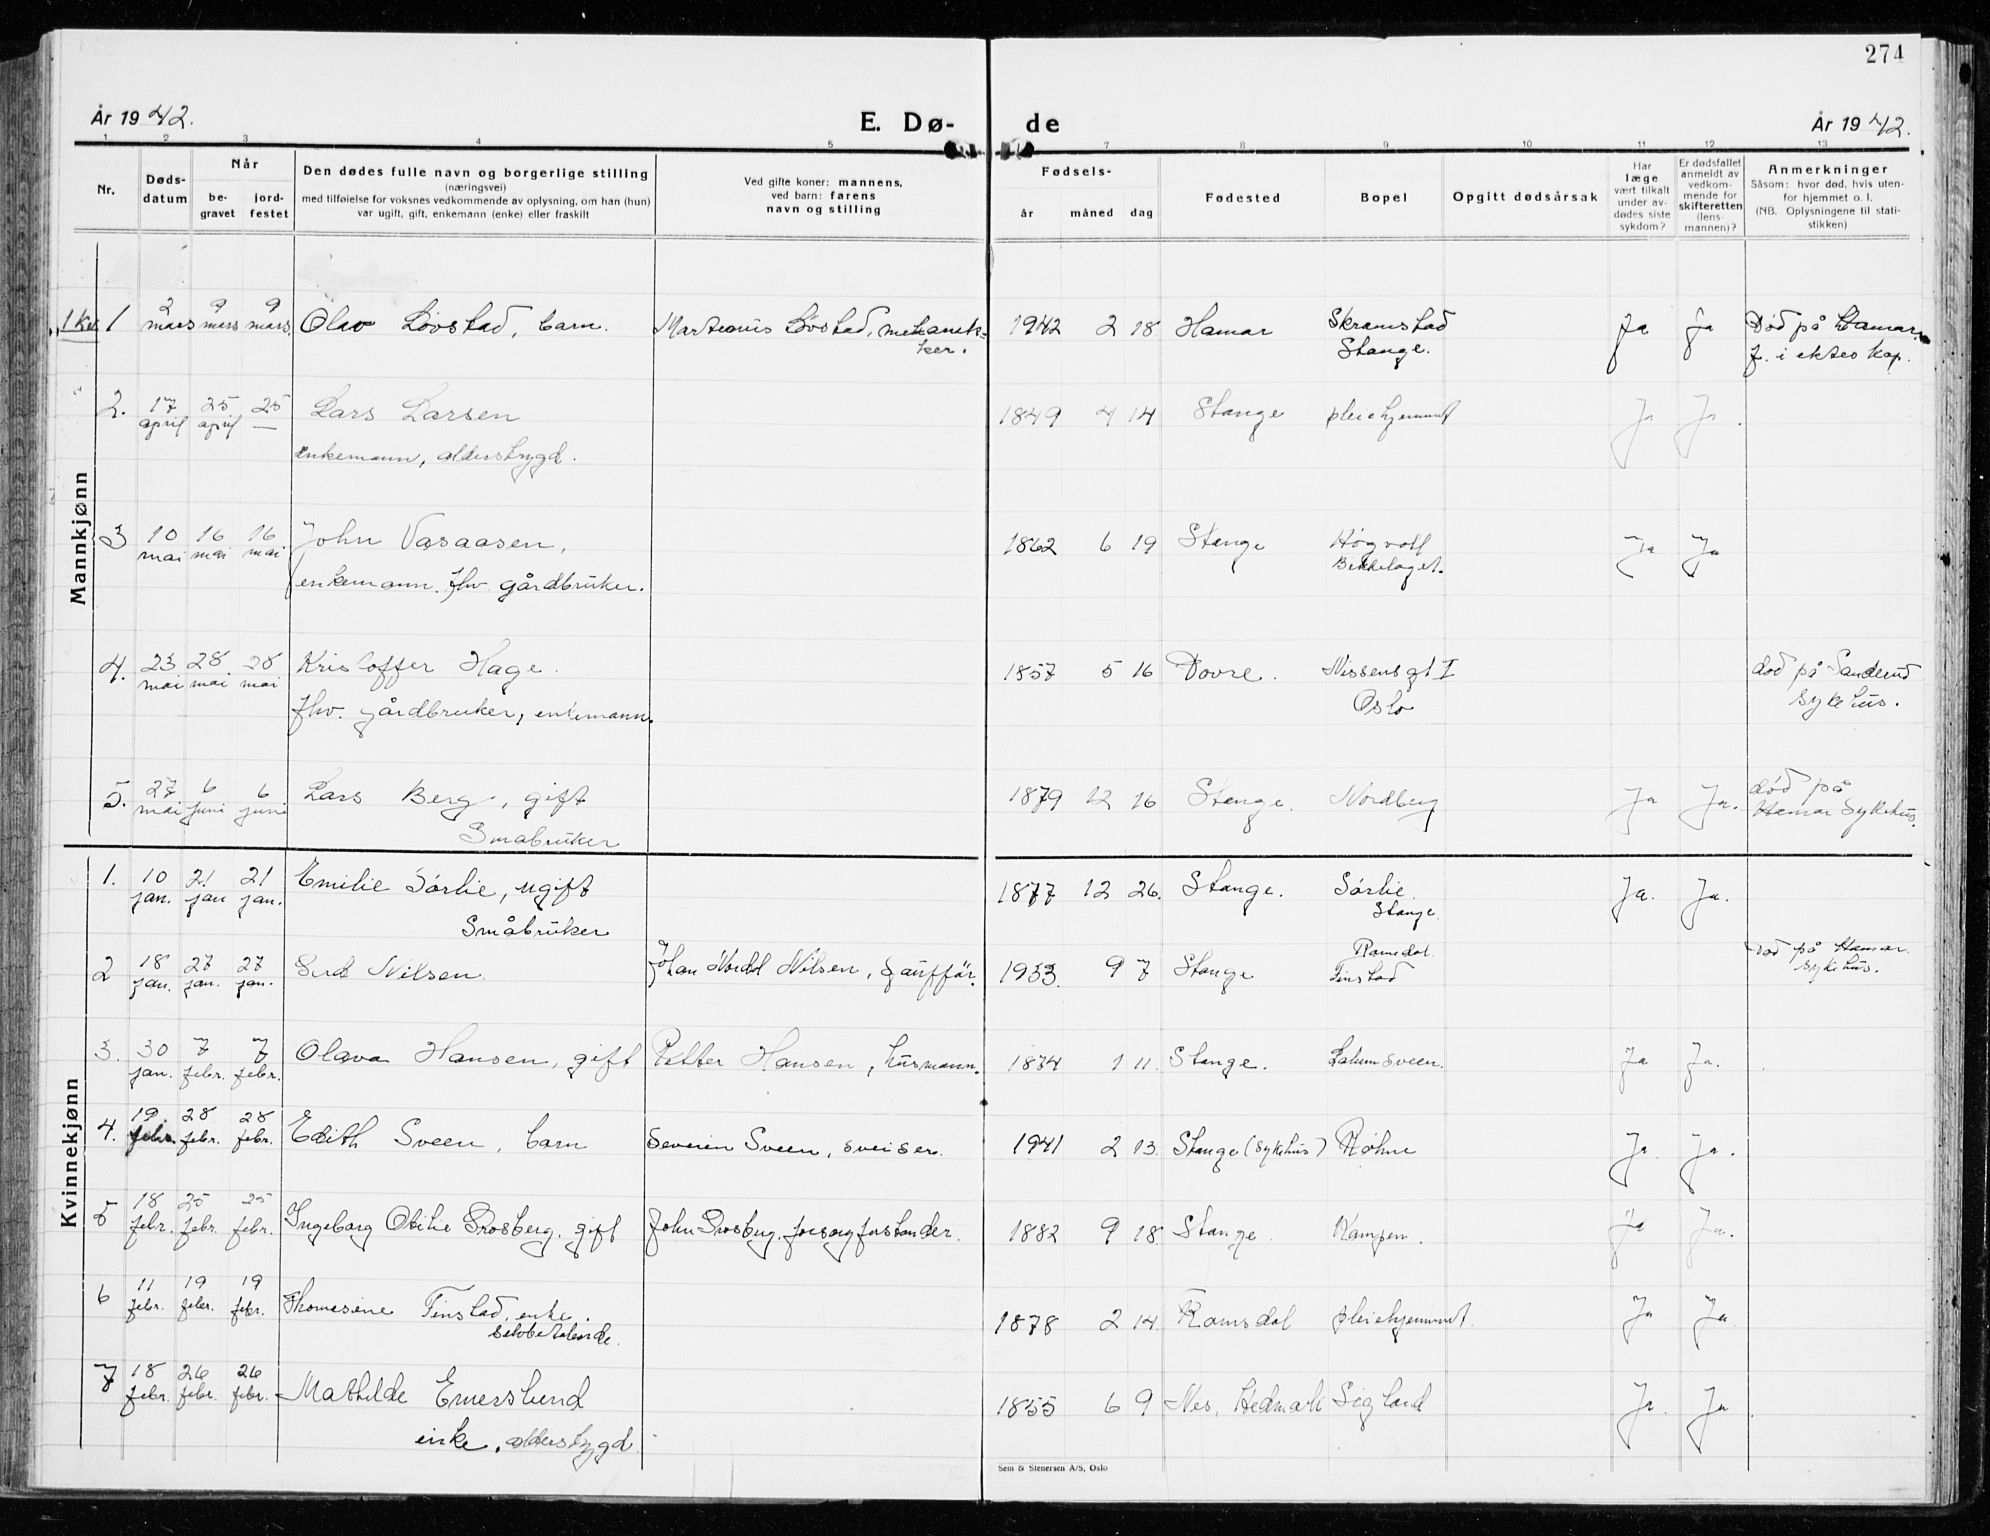 274
År 1942.
E. Dø-
de
År 1942.
1 2 3 4 5 7 8 9 10 11 12 13
Nr.
Døds-
datum
Når
be-
gravet
jord-
festet
Den dødes fulle navn og borgerlige stilling
(næringsvei)
med tilføielse for voksnes vedkommende av oplysning, om han (hun)
var ugift, gift, enkemann (enke) eller fraskilt
Ved gifte koner: mannens,
ved barn: farens
navn og stilling
Fødsels-
år måned dag
Fødested
Bopel
Opgitt dødsårsak
Har
læge
vært tilkalt
under av-
dødes siste
sykdom?
Er dødsfallet
anmeldt av
vedkom-
mende for
skifteretten
(lens-
mannen)?
Anmerkninger
Såsom: hvor død, hvis uten-
for hjemmet o. l.
(NB. Oplysningene til stati-
stikken)
Mannkjønn
1 2 mars 9 mars 9 mars. Olav Lövstad, barn. Martenius Lövstad, mekanik- 1942 2 18. Hamar Skramstad Ja Ja Död på Hamar
ker. Stange. f. i ekteskap.
2. 17 april 25 april 25 — Lars Larsen 1849 4 14 Stange pleiehjemmet Ja Ja.
enkemann, alderstrygd.
3 10 mai 16 mai 16 mai John Vasaasen, 1862 6 19 Stange Høgvoll Ja Ja
enkemann. fhv. gårdbruker. Bekkelaget.
4. 23 mai 28 mai 28 mai Kristoffer Hage. 1857 5 16 Dovre. Nissensgt I död på Sanderud
fhv. gårdbruker, enkemann. Oslo sykehus.
5. 27 mai 6 juni 6 juni Lars Berg, gift 1879 12 16 Stange. Nordberg Ja Ja. död på
Småbruker Hamar Sykehus.
Kvinnekjønn
1. 10 jan. 21 jan 21 jan. Emilie Sörlie, ugift 1877 12 26. Stange. Sörlie Ja. Ja.
Småbruker Stange.
2 18 jan. 27 jan. 27 jan. Nilsen. Johan Nordal Nilsen, 1933. 9 7 Stange Romedal. Död på Hamar
Finstad sykehus.
3. 30 jan. 7 febr. 7 febr. Olava Hansen, gift Petter Hansen, husmann. 1874 1 11. Stange. Ja Ja.
4. 19. febr. 28 febr. 28 febr. Edith Sveen, barn Severin Sveen, sveiser. 1941 2 13. Stange (sykehus) Røhne Ja. Ja.
5 18 febr. 25 febr. 25 febr. Ingeborg Otilie Prosberg, gift John Prosberg, 1882 9 18. Stange. Kampen. Ja Ja.
6 11 febr. 19 febr. 19 febr. Thomasine Finstad, enke. 1878 2 14. Romsdal pleiehjemmet. Ja Ja
7 18 febr. 26 febr. 26 febr. Mathilde Emerslund 1855 6 9 Nes, Hedmark Sigstad Ja. Ja
enke, alderstrygd.
Sem & Stenersen A/S, Oslo